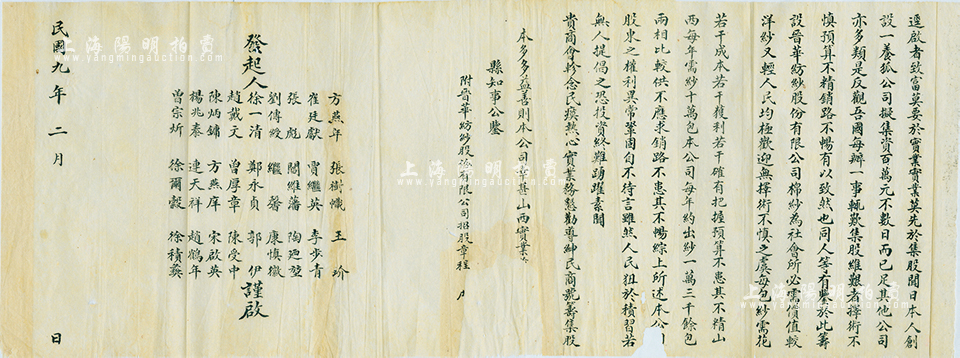 逕啟者致富莫要於實業實業莫先於集股聞日本人創
設一養狐公司擬集資百萬元不數日而已足其他公司
亦多類是反觀吾國每辦一事輒歎集股維艱者擇術不
慎預算不精銷路不暢有以致然也同人等有鑒於此籌
設晉華紡紗股份有限公司棉紗為社會所必需價值較
洋紗又輕人民均極歡迎無擇術不慎之虞每包紗需花
若干成本若干獲利若干確有把握預算不患其不精山
西每年需紗十萬包本公司每年約出紗一萬三千餘包
兩相比較供不應求銷路不患其不暢綜上所述本公司
股東之權利異常鞏固自不待言雖然人民狃於積習若
無人提倡之恐投資終難踴躍素聞
貴商會軫念民瘼熱心實業務懇勸導紳民商號籌集股
本多多益善則本公司幸甚山西實業
縣知事公鑒
附晉華紡紗股份有限公司招股章程
發起人
方燕年 張樹幟 王玠
崔廷獻 賈繼英 李步青
張彪 閻維藩 陶廼堃
劉傅綬 繼馨 康慎徽
徐一清 鄭永貞 郭伊
趙戴文 曾厚章 陳受中
陳炳鏞 方燕庠 宋啟英
楊兆泰 連天祥 趙鶴年
曾宗炘 徐爾轂 徐積義
謹啟
民國九年二月 日
上海陽明拍賣
www.yangmingauction.com
上海陽明拍賣
www.yangmingauction.com
上海陽明拍賣
www.yangmingauction.com